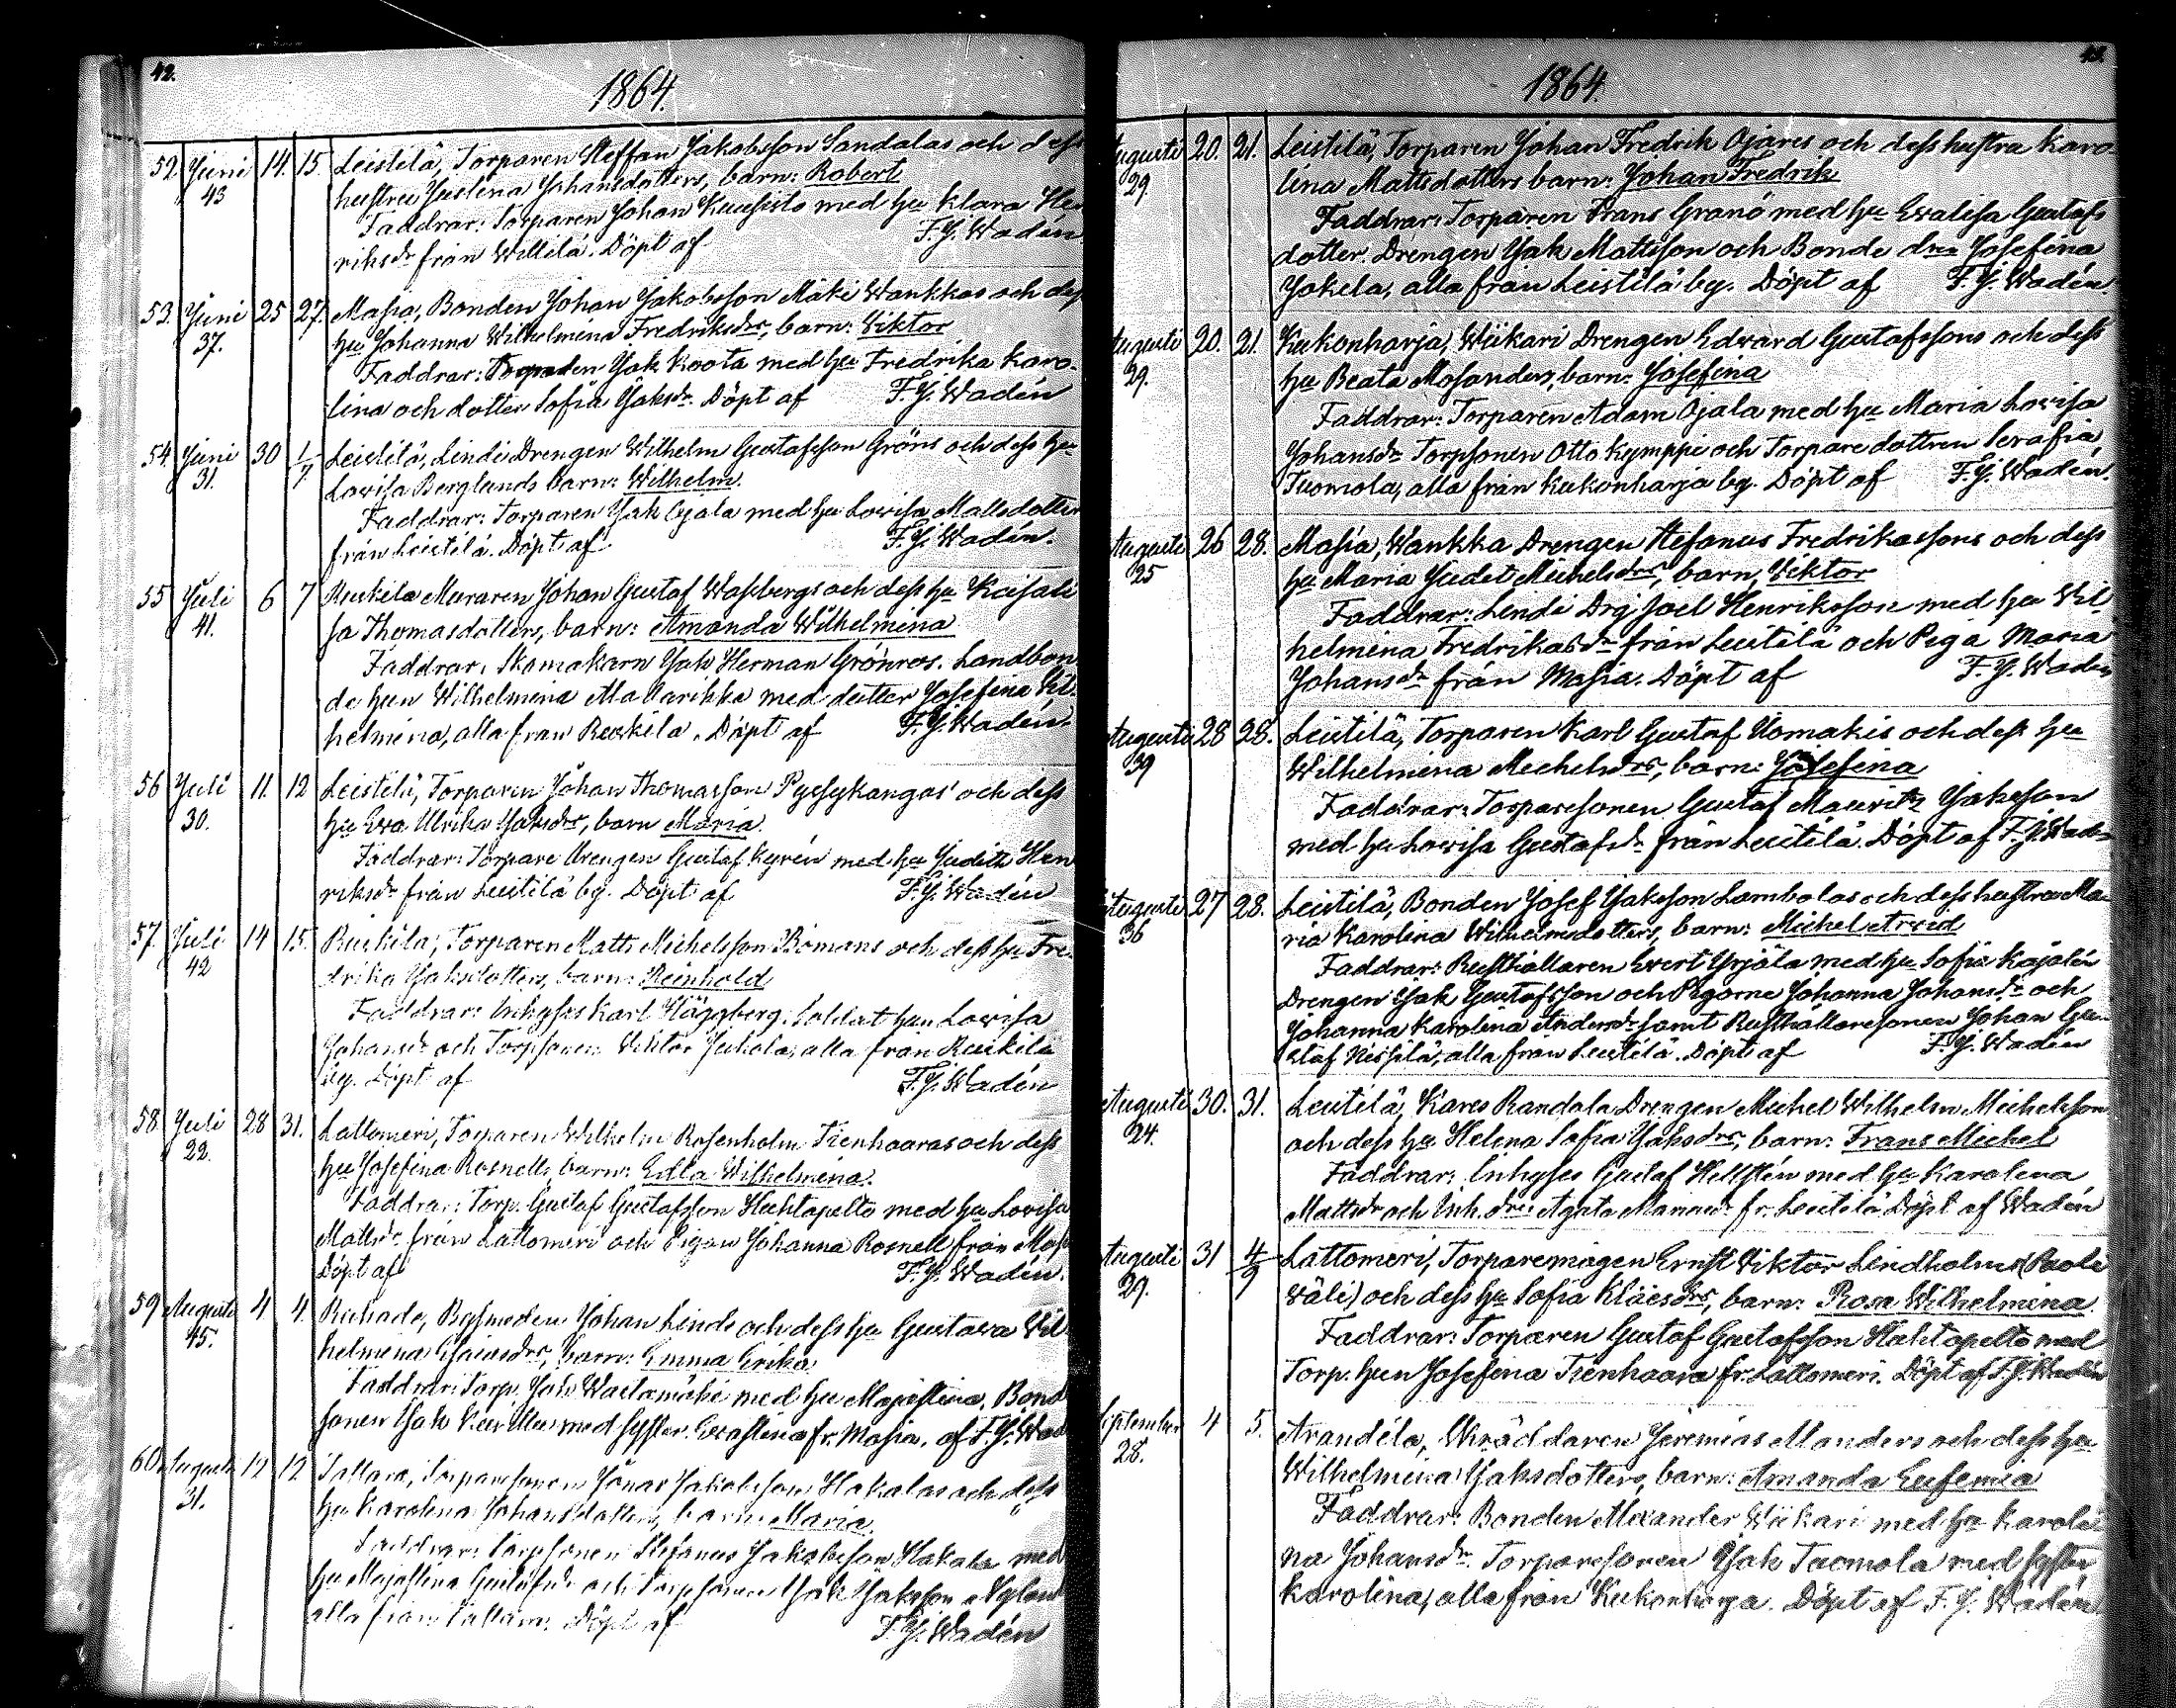 42.
1864.
52. Juni 14. 15. Leistilä, Torparen Steffan Jakobsson Sandalas och dess
43 hustru Justina Johansdotters, barn: Robert
Faddrar: Torparen Johan Kuusisto med hu Klara Hen
riksdr från Willilä. Döpt af F. J. Wadén
53. Juni 25 27. Masia, Bonden Johan Jakobsson Mäki Wankkas och dess
37. hu Johanna Wilhelmina Fredriksdrs, barn: Viktor
Faddrar: Torparen Isak Koota med hu Fredrika Karo-
lina och dotter Sofia Isaksdr. Döpt af F. J. Wadén
54. Juni 30 1/7 Leistilä, Lindi Drengen Wilhelm Gustafsson Gröns och dess hu
31. Lovisa Berglunds barn: Wilhelm.
Faddrar: Torparen Isak Ojala med hu Lovisa Mattsdotter
från Leistilä. Döpt af F. J. Wadén.
55 Juli 6 7 Ruskila Muraren Johan Gustaf Wassbergs och dess hu Kaisali
41. sa Thomasdotters, barn: Amanda Wilhelmina
Faddrar: Skomakarn Isak Herman Grönroos. Landbon
de hun Wilhelmina Mallarikka med dotter Josefina Wil
helmina, alla från Ruskila. Döpt af F. J. Wadén.
56 Juli 11. 12 Leistilä, Torparen Johan Thomasson Pyssykangas och dess
30. hu Eva Ulrika Isaksdrs, barn Maria.
Faddrar: Torpare Drengen Gustaf Kyrén med hu Judith Hen
riksdr från Leistilä by. Döpt af F. J. Wadén
57. Juli 14 15. Ruskila, Torparen Matts Michelsson Bomans och dess hu Fre-
42 drika Isaksdotters, barn: Reinhold
Faddrar: Inhyses Karl Häggberg. Soldat hun Lovisa
Johansdr och Torpsonen Viktor Jukola, alla från Ruskila
by. Döpt af F. J. Wadén
58. Juli 28 31. Lattomeri, Torparen Wilhelm Rosenholm Tienhaaras och dess
22. hu Josefina Rosnells, barn: Edla Wilhelmina.
Faddrar: Torp. Gustaf Gustafsson Huhtapelto med hu Lovisa
Mattsdr från Lattomeri och Pigan Johanna Rosnell från Mas
Döpt af F. J. Wadén.
59 Augusti 4 4. Byssmeden Johan Linds och dess hu Gustava Wil
45. helmina Esaiasdrs, barn: Emma Erika
Faddrar: Torp. Isak Waitamäki med hu Majastina, Bond
sonen Isak med syster Evastina fr. Masia. af F. J. Wad
60. Augusti 12 12 Torparesonen Jonas Jakobsson Hakalas och dess
31. hu Karolina Johansdotters, barn: Maria.
Faddrar: Torpsonen Stefanus Jakobsson Hakala med
hu Majastina Gustafsdr och Torpsonen Isak Isaksson Nylund
alla från. Döpt af F. J. Wadén
43.
1864.
Augusti 20. 21. Leistilä, Torparen Johan Fredrik Ojares och dess hustru Karo-
29 lina Mattsdotters barn: Johan Fredrik
Faddrar: Torparen Frans Granö med hu Evalisa Gustafs
dotter. Drengen Isak Mattsson och Bonde dren Josefina
Jokela, alla från Leistilä by. Döpt af F. J. Wadén.
Augusti 20. 21. Kukonharja, Wiikari Drengen Edvard Gustafssons och dess
29. hu Beata Mosanders, barn: Josefina
Faddrar: Torparen Adam Ojala med hu Maria Lovisa
Johansdr Torpsonen Otto Kymppi och Torpare dottren Serafia
Tuomola, alla från Kukonharja by. Döpt af F. J. Wadén.
Augusti 26 28. Masia, Wankka Drengen Stefanus Fredrikassons och dess
25 hu Maria Judit Michelsdrs, barn, Viktor
Faddrar: Lindi Drg Joel Henriksson med hu Wil
helmina Fredrikasdr från Leistilä och Piga Maria
Johansdr från Masia. Döpt af F. J. Wadén
Augusti 28 28. Leistilä, Torparen Karl Gustaf Uomakis och dess hu
39 Wilhelmina Michelsdrs, barn: Josefina
Faddrar: Torparesonen Gustaf Mauritz Isaksson
med hu Lovisa Gustafsdr från Leistilä. Döpt af F. J. Wadén
Augusti 27 28. Leistilä, Bonden Josef Isaksson Lambolas och dess hustru Ma-
36 ria Karolina Wilhelmsdotters, barn: Michel Arvid
Faddrar: Rusthållaren Evert Yrjölä med hu Sofia Kajalén
Drengen Isak Gustafsson och Pigorna Johanna Johansdr och
Johanna Karolina Andersdr samt Rusthållaresonen Johan Gu-
staf Nissilä, alla från Leistilä. Döpt af F. J. Wadén
Augusti 30. 31. Leistilä, Kares Randala Drengen Michel Wilhelm Michelsson
24. och dess hu Helena Sofia Isaksdrs, barn: Frans Michel
Faddrar: Inhyses Gustaf Hellstén med hu Karolina
Mattsdr och Inh. drn Agata Mariasdr fr. Leistilä Döpt af Wadén
Augusti 31 4/9 Lattomeri, Torparemågen Ernst Viktor Lindholms (Puoli
29. väli) och dess hu Sofia Kläesdrs, barn: Rosa Wilhelmina.
Faddrar: Torparen Gustaf Gustafsson Huhtapelto med
Torp. hun Josefina Tienhaara fr. Lattomeri. Döpt af F. J. Wadén
September 4 5. Arandila, Skräddaren Jeremias Manders och dess hu
28. Wilhelmina Isaksdotters, barn: Amanda Eufemia
Faddrar: Bonden Alexander Wiikari med hu Karoli-
na Johansdr. Torparesonen Isak Tuomola med syster
Karolina, alla från Kukonharja. Döpt af F. J. Wadén